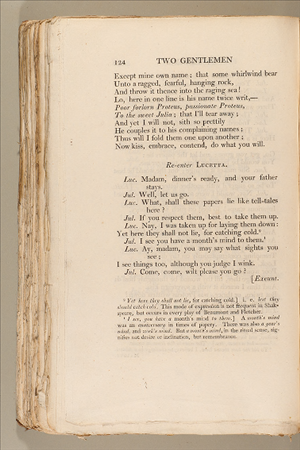 124 TWO GENTLEMEN
Except mine own name; that some whirlwind bear
Unto a ragged, fearful, hanging rock,
And throw it thence into the raging sea!
Lo, here in one line is his name twice writ,—
Poor forlorn Proteus, passionate Proteus,
To the sweet Julia; that I'll tear away;
And yet I will not, sith so prettily
He couples it to his complaining names;
Thus will I fold them one upon another;
Now kiss, embrace, contend, do what you will.
Re-enter LUCETTA.
Luc. Madam, dinner's ready, and your father
stays.
Jul. Well, let us go.
Luc. What, shall these papers lie like tell-tales
here?
Jul. If you respect them, best to take them up.
Luc. Nay, I was taken up for laying them down:
Yet here they shall not lie, for catching cold.
Jul. I see you have a month's mind to them.
Luc. Ay, madam, you may say what sights you
see;
I see things too, although you judge I wink.
Jul. Come, come, wilt please you go?
[Exeunt.
Yet here they shall not lie, for catching cold.] i. e. lest they
should catch cold. This mode of expression is not frequent in Shak-
speare, but occurs in every play of Beaumont and Fletcher.
I see, you have a month's mind to them.] A month's mind
was an anniversary in times of popery. There was also a year's
mind, and week's mind. But a month's mind, in the ritual sense, sig-
nifies not desire or inclination, but remembrance.